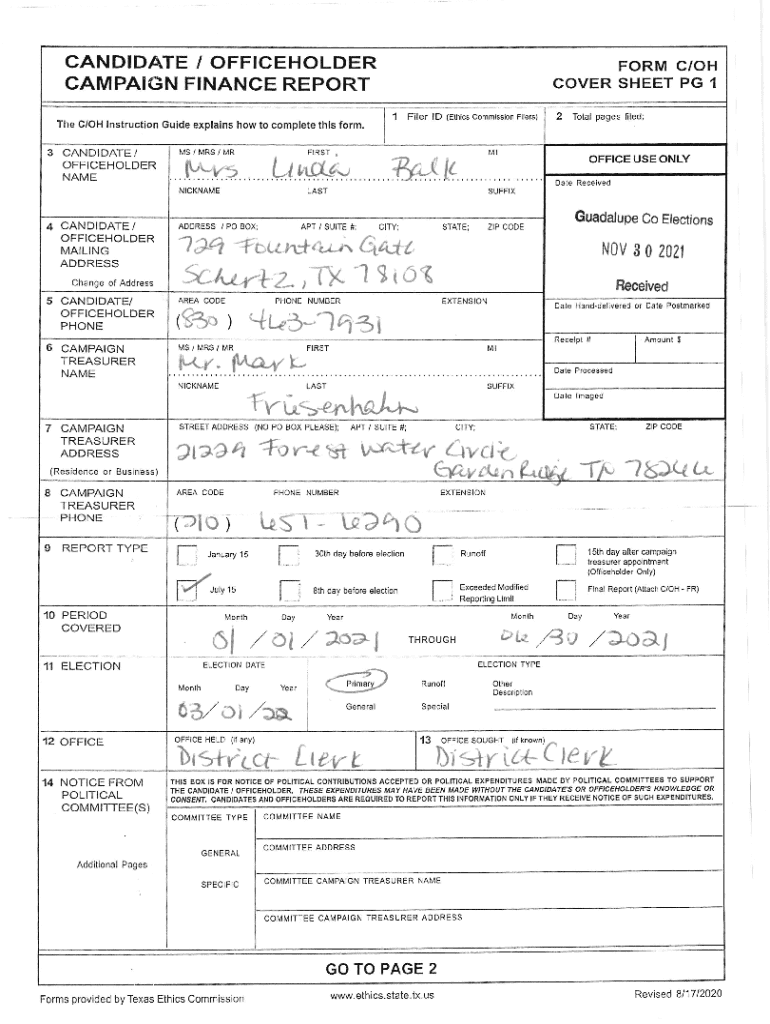 CANDIDATE / OFFICEHOLDER
CAMPAIGN FINANCE REPORT
FORM C/OH
COVER SHEET PG 1
The C/OH Instruction Guide explains how to complete this form.
1 Filer ID (Ethics Commission Filers)
2 Total pages filed:
3 CANDIDATE / OFFICEHOLDER NAME
MS / MRS / MR FIRST MI
Mrs Linda Balk
NICKNAME LAST SUFFIX
OFFICE USE ONLY
Date Received
Guadalupe Co Elections
NOV 30 2021
Received
4 CANDIDATE / OFFICEHOLDER MAILING ADDRESS
Change of Address
ADDRESS / PO BOX; APT / SUITE #; CITY; STATE; ZIP CODE
729 Fountain Gate
Schertz, TX 78108
5 CANDIDATE/ OFFICEHOLDER PHONE
AREA CODE PHONE NUMBER EXTENSION
(830) 463-7931
Date Hand-delivered or Date Postmarked
Receipt # Amount $
Date Processed
Date Imaged
6 CAMPAIGN TREASURER NAME
MS / MRS / MR FIRST MI
Mr. Mark
NICKNAME LAST SUFFIX
Friesenhahn
7 CAMPAIGN TREASURER ADDRESS
(Residence or Business)
STREET ADDRESS (NO PO BOX PLEASE); APT / SUITE #; CITY; STATE; ZIP CODE
21229 Forest Water Circle
Garden Ridge TX 78266
8 CAMPAIGN TREASURER PHONE
AREA CODE PHONE NUMBER EXTENSION
(210) 651-6290
9 REPORT TYPE
January 15 30th day before election Runoff 15th day after campaign treasurer appointment (Officeholder Only)
July 15 8th day before election Exceeded Modified Reporting Limit Final Report (Attach C/OH - FR)
10 PERIOD COVERED
Month Day Year Month Day Year
01 / 01 / 2021 THROUGH 06 / 30 / 2021
11 ELECTION
ELECTION DATE
Month Day Year
03/01/22
ELECTION TYPE
Primary Runoff Other Description
General Special
12 OFFICE
OFFICE HELD (if any)
District Clerk
13 OFFICE SOUGHT (if known)
District Clerk
14 NOTICE FROM POLITICAL COMMITTEE(S)
Additional Pages
THIS BOX IS FOR NOTICE OF POLITICAL CONTRIBUTIONS ACCEPTED OR POLITICAL EXPENDITURES MADE BY POLITICAL COMMITTEES TO SUPPORT
THE CANDIDATE / OFFICEHOLDER. THESE EXPENDITURES MAY HAVE BEEN MADE WITHOUT THE CANDIDATE'S OR OFFICEHOLDER'S KNOWLEDGE OR
CONSENT. CANDIDATES AND OFFICEHOLDERS ARE REQUIRED TO REPORT THIS INFORMATION ONLY IF THEY RECEIVE NOTICE OF SUCH EXPENDITURES.
COMMITTEE TYPE
GENERAL
SPECIFIC
COMMITTEE NAME
COMMITTEE ADDRESS
COMMITTEE CAMPAIGN TREASURER NAME
COMMITTEE CAMPAIGN TREASURER ADDRESS
GO TO PAGE 2
Forms provided by Texas Ethics Commission www.ethics.state.tx.us Revised 8/17/2020